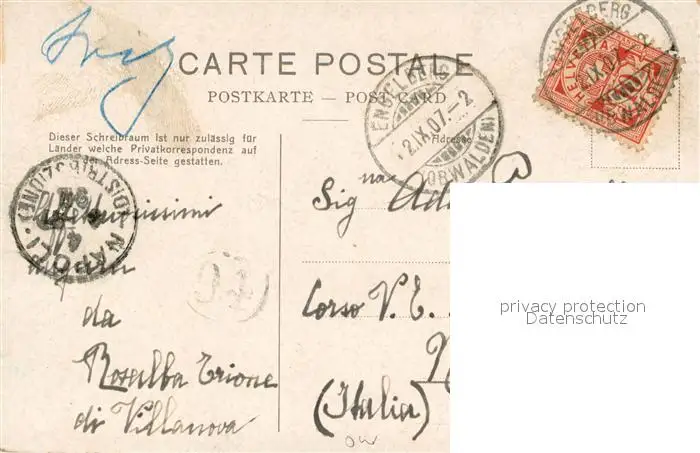 CARTE POSTALE
POSTKARTE — POST CARD
Dieser Schreibraum ist nur zulässig für
Länder welche Privatkorrespondenz auf
der Adress-Seite gestatten.
Adresse
ENGELBERG
2.IX.07.–2
(OBWALDEN)
HELVETIA
10
NAPOLI
(DISTRIBUZIONE)
da
Rosalba Trione
di Villanova
Sig na
Corso V. E.
(Italia)
privacy protection
Datenschutz